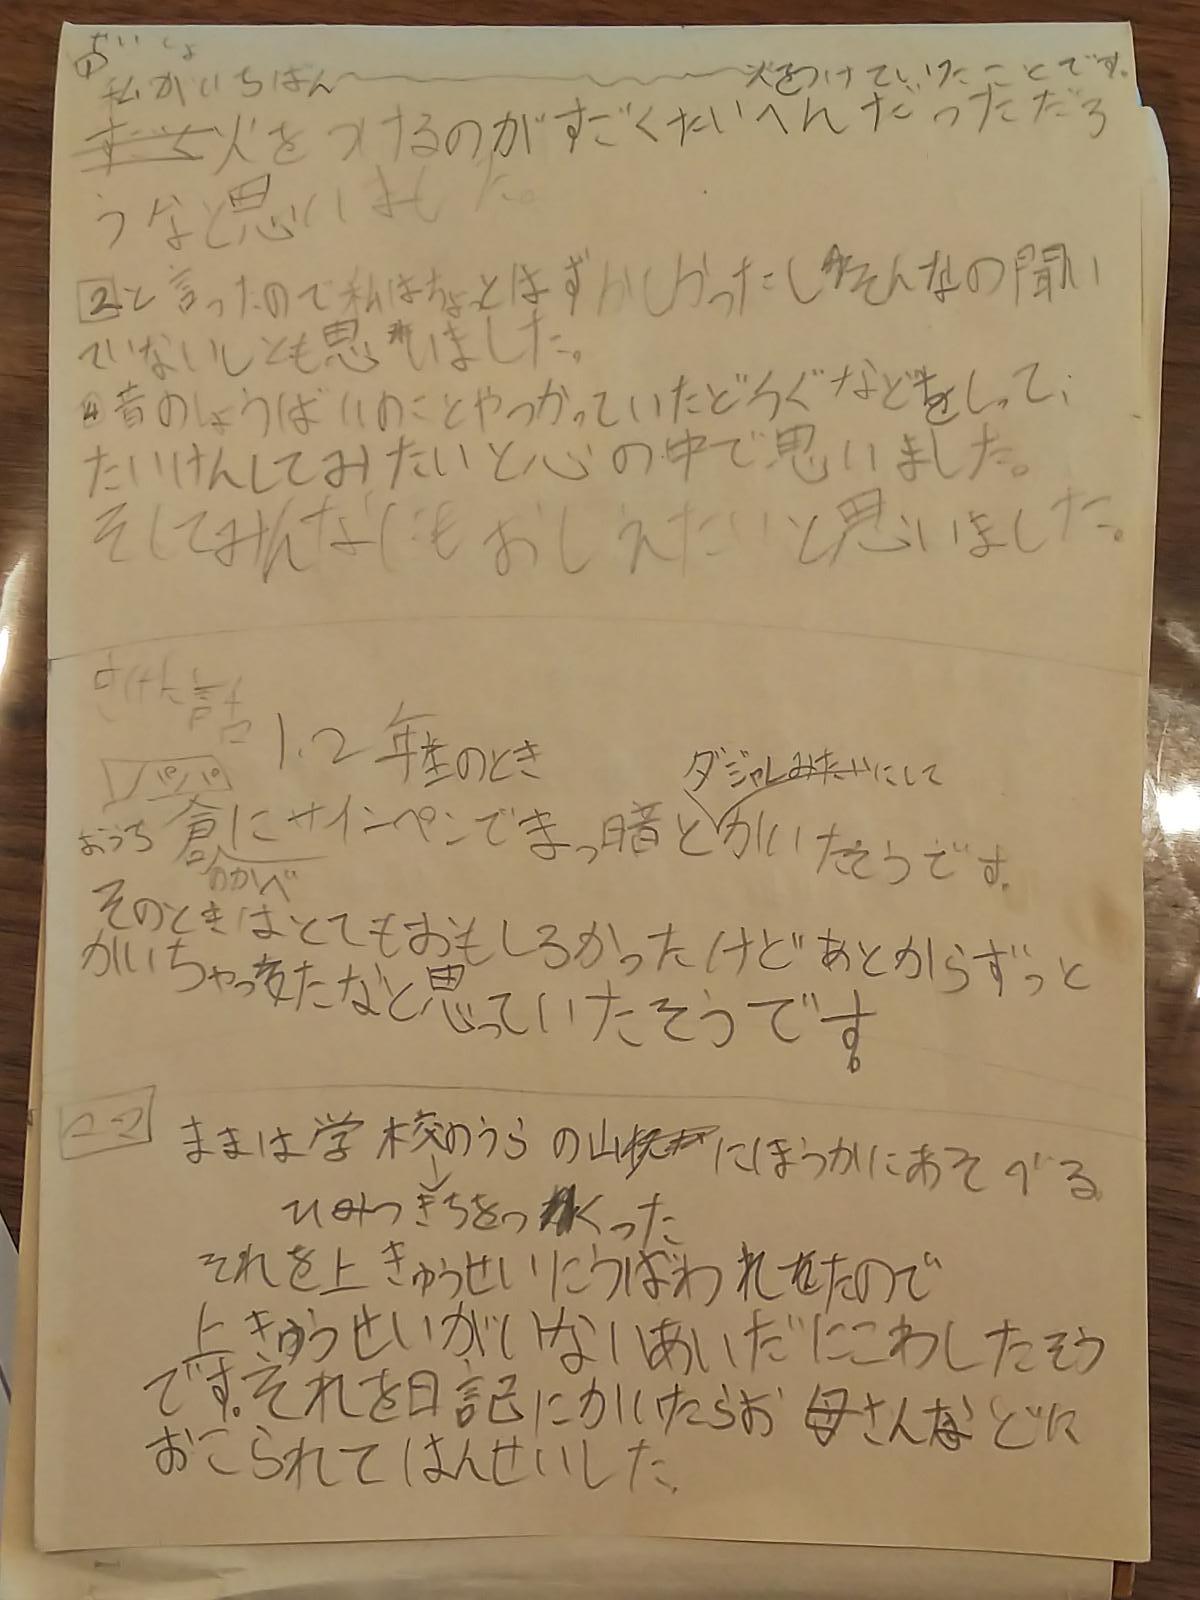 さいしょ
① 私がいちばん 火をつけていたことです。
火をつけるのがすごくたいへんだっただろ
うなと思いました。
2 と言ったので私はちょっとはずかしかったしそんなの聞い
ていないしとも思いました。
④昔のしょうばいのことやつかっていたどうぐなどをしって、
たいけんしてみたいと心の中で思いました。
そしてみんなにもおしえたいと思いました。
きけん話
1.2年生のとき
パパ
ダジャレみたいにして
おうち 倉にサインペンでまっ暗とかいたそうです。
のかべ
そのときはとてもおもしろかったけどあとからずっと
かいちゃったなと思っていたそうです。
ママ
ままは学校のうらの山にほうかにあそべる
ひみつきちをつくった
それを上きゅうせいにうばわれたので
上きゅうせいがいないあいだにこわしたそう
です。それを日記にかいたらお母さんなどに
おこられてはんせいした。